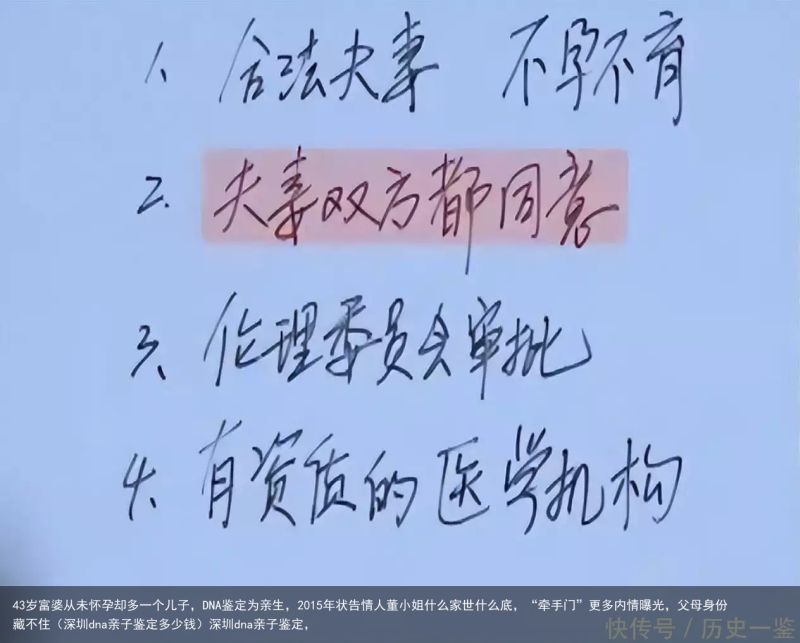 1、合法夫妻 不孕不育
2、夫妻双方都同意
3、伦理委员会审批
4、有资质的医学机构
43岁富婆从未怀孕却多一个儿子，DNA鉴定为亲生，2015年状告情人董小姐什么家世什么底，“牵手门”更多内情曝光，父母身份
藏不住（深圳dna亲子鉴定多少钱）深圳dna亲子鉴定，
快传号 / 历史一鉴